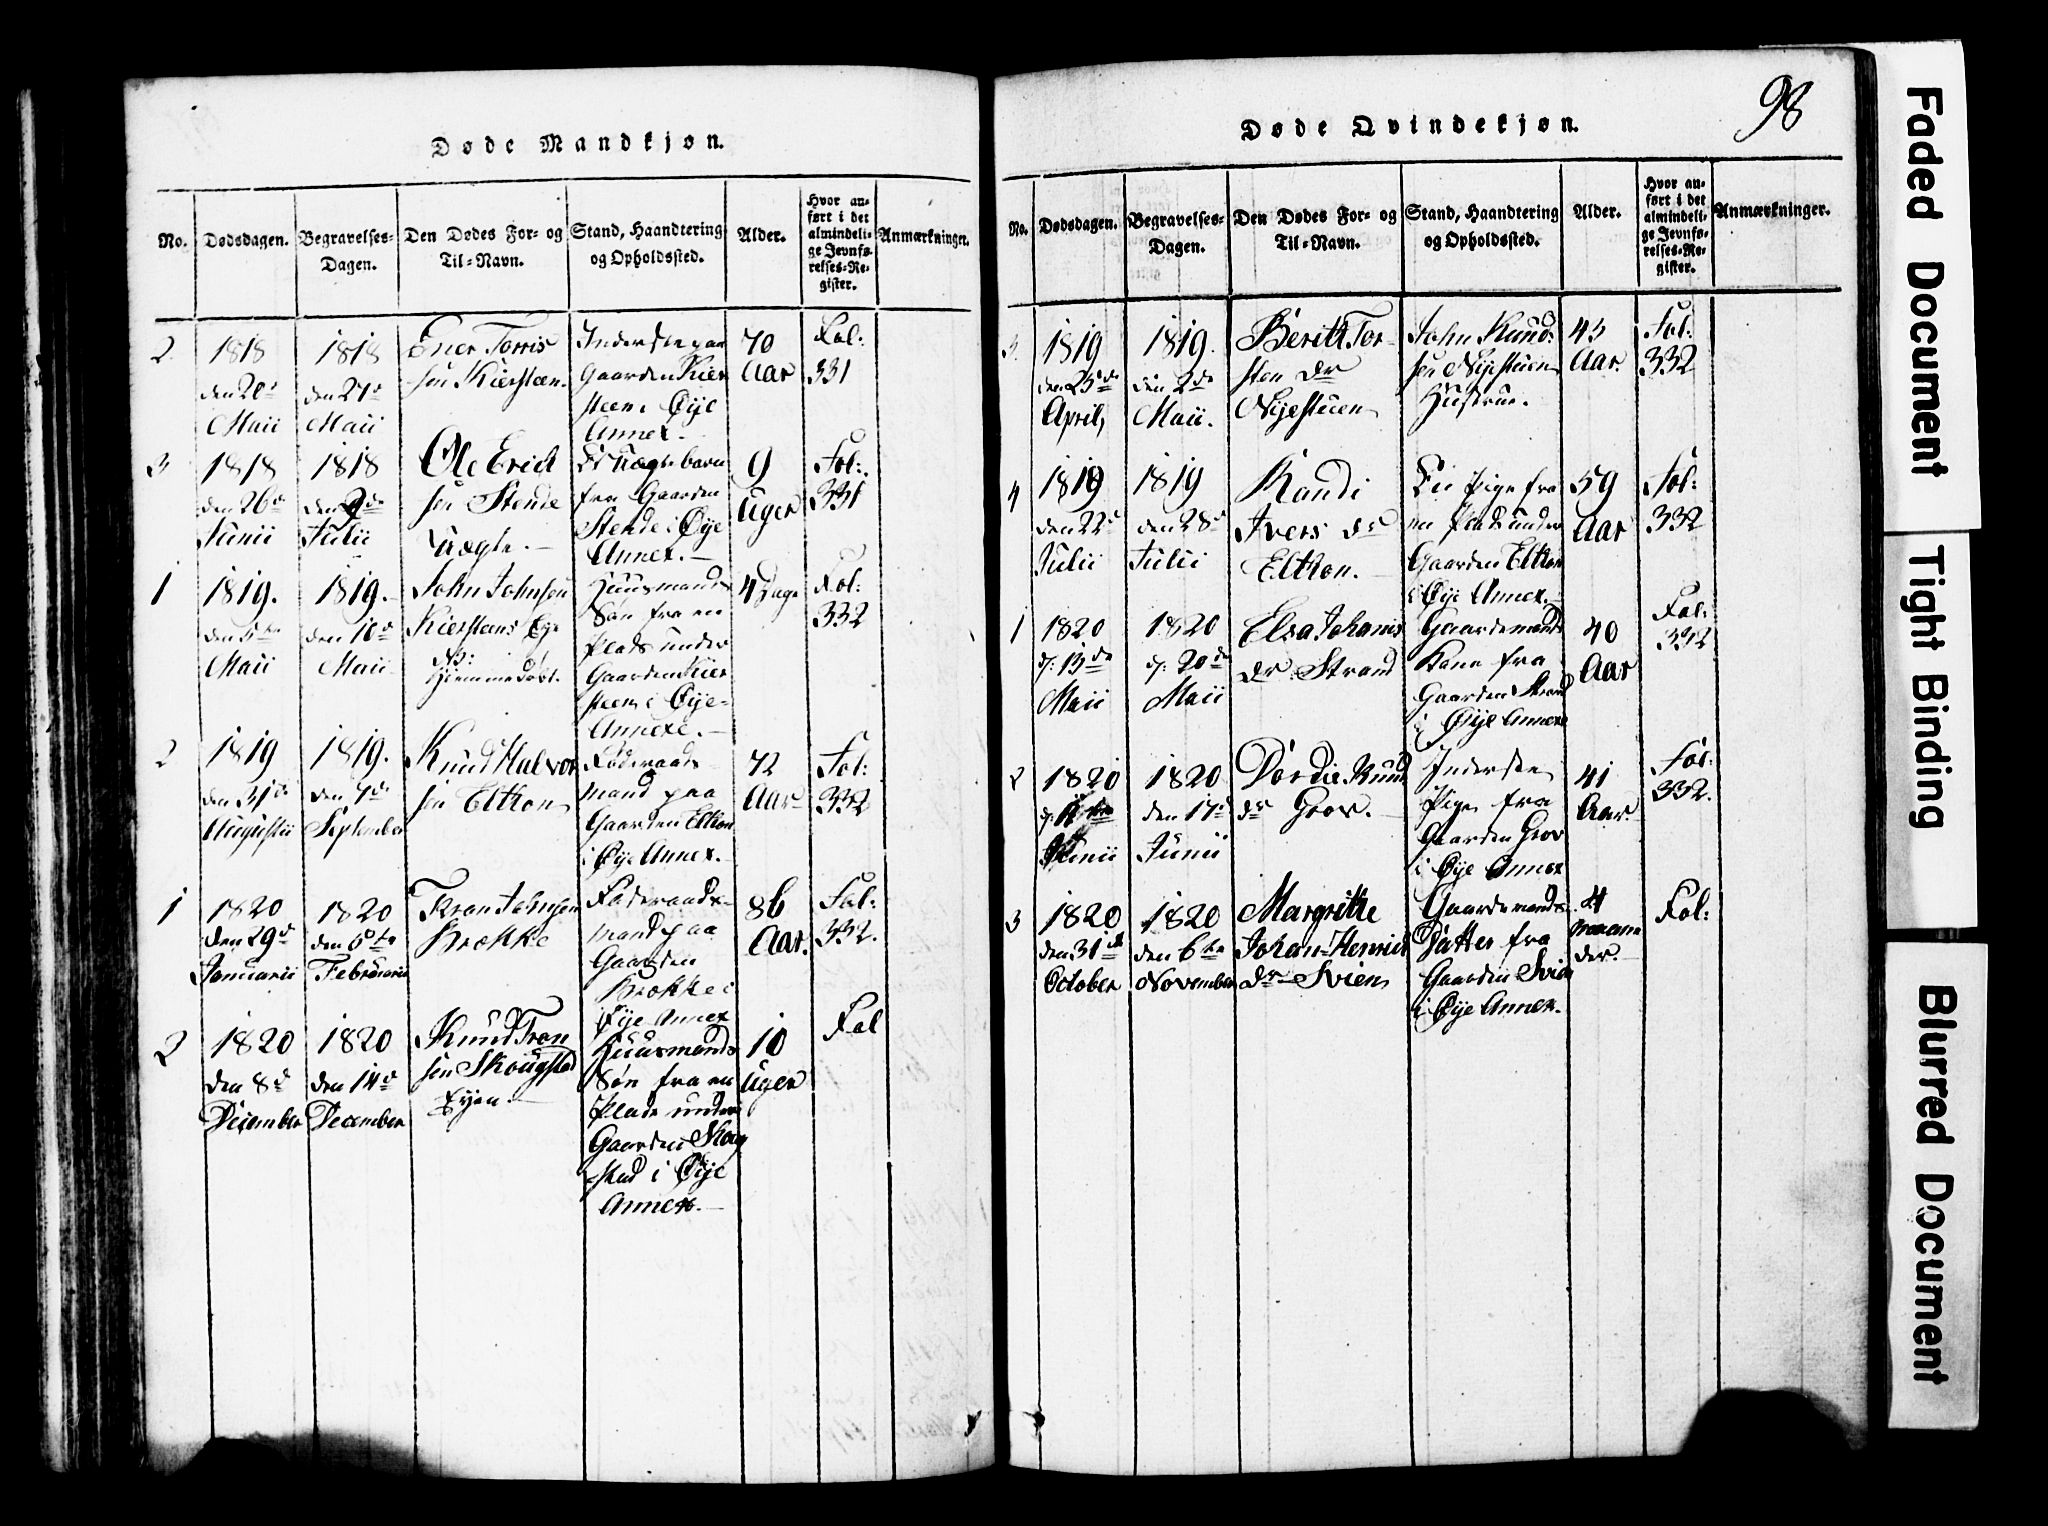 98
Døde Mandkjøn.
No. Dødsdagen. Begravelses-Dagen. Den Dødes For- og Til-Navn. Stand, Haandtering og Opholdssted. Alder. Hvor anført i det almindelige Jevnførelses-Register. Anmærkninger.
2. 1818 1818 Ener Torris Inderste paa 70 Fol:
den 20de den 27de sen Kiersteen. Gaarden Kier Aar 331
Maii Maii steen i Øije
Annex.
3 1818 1818 Ole Erich Et Uægte barn 9 Fol:
den 26de den 2de sen Stende fra Gaarden Uger 331
Junii Julii Uægte. Stende i Øije
Annex.
1 1819. 1819. John Johnsen Huusmands 4 Dage Fol:
den 5te den 10de Kiersteens Eje Søn fra en 332
Maii Maii NB: Plads under
Hiemmedøbt. Gaarden Kier
steen i Øije
Annexe.
2 1819 1819. Knud Halvor Føderaads 72 Fol:
den 31te den 7de sen Eltton mand paa Aar 332
Augustii September Gaarden Eltton
i Øije Annex.
1 1820 1820 Tron Johnsen Føderaads 86 Fol:
den 29de den 6te Brække mand paa Aar. 332.
Januarii Februarii Gaarden
Brække i
Øije Annex
2 1820 1820 Knud Tron Huusmands 10 Fol
den 8de den 14de sen Skougstad Søn fra en Uger
December December Eyen. Plads under
Gaarden Skoug
stad i Øije
Annex.
Døde Qvindekjøn.
No. Dødsdagen. Begravelses-Dagen. Den Dødes For- og Til-Navn. Stand, Haandtering og Opholdssted. Alder. Hvor anført i det almindelige Jevnførelses-Register. Anmærkninger.
3. 1819 1819. Berith Tor- John Knud- 43 Fol:
den 25de den 2de sten Dr sen Nijestuen Aar. 332
April, Maii. Nijestuen Hustrue.
4 1819 1819 Randi En Pige fra 59 Fol:
den 22de den 28de Ivers Dr en Plads under Aar 332
Julii Julii Eltton. Gaarden Eltton
i Øije Annex.
1 1820 1820 Elsa Johanis Gaardmands 40 Fol:
d: 13de d: 20de Dr. Strand Kone fra Aar 332
Maii Maii Gaarden Strand
i Øije Annexe
2 1820 1820 Dordie Knuds Inderste 41 Fol:
den 17de dr Grov. Pige fra Aar. 332.
Junii Junii Gaarden Grov
i Øije Annex
3 1820 1820 Margrithe Gaardemands 4 Fol:
den 31te den 6te Johan-Henrich Datter fra Maane
October November Dr Svien Gaarden Svien der.
i Øije Annex.
Faded Document
Tight Binding
Blurred Document